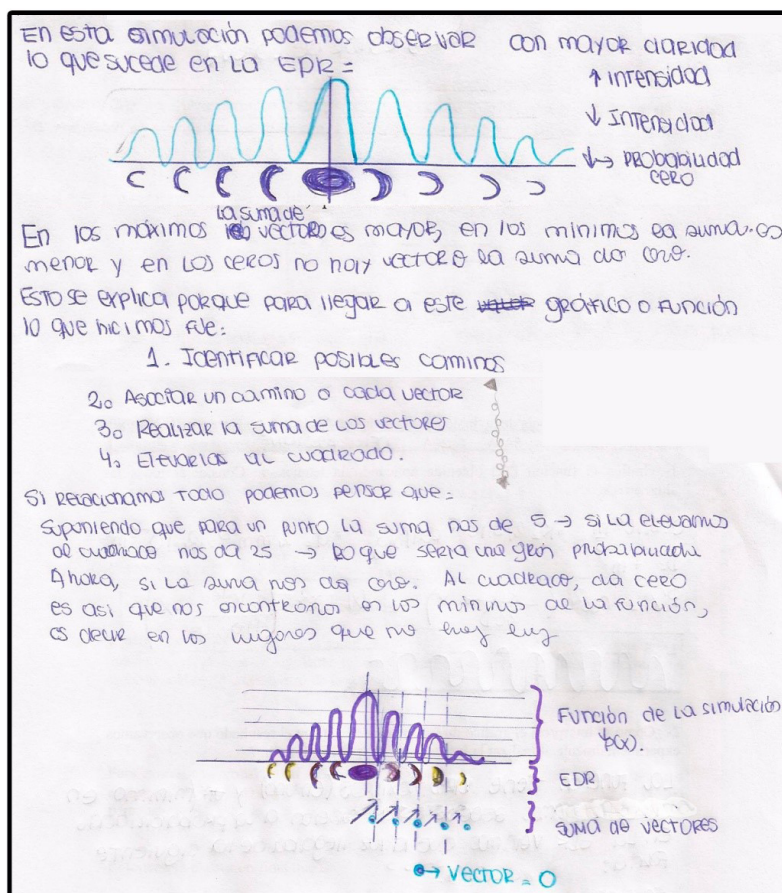 En esta simulación podemos observar con mayor claridad
lo que sucede en la EDR =
↑ intensidad
↓ Intensidad
↓→ probabilidad
cero
la suma de
En los máximos vectores mayor, en los mínimos la suma es
menor y en los ceros no hay vector o la suma da cero.
Esto se explica porque para llegar a este gráfico o función
lo que hicimos fue:
1. Identificar posibles caminos
2. Asociar un camino a cada vector
3. Realizar la suma de los vectores
4. Elevarlas al cuadrado.
Si relacionamos todo podemos pensar que:
Suponiendo que para un punto la suma nos de 5 → si la elevamos
al cuadrado nos da 25 → lo que sería una gran probabilidad.
Ahora, si la suma nos da cero. Al cuadrado, da cero
es así que nos encontramos en los mínimos de la función,
es decir en los lugares que no hay luz
Función de la simulación
EDR
suma de vectores
→ vector = 0